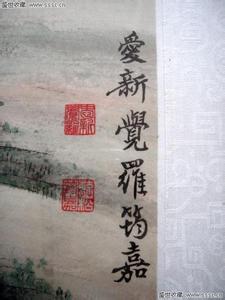 盛世收藏 www.sssc.cn
愛新覺羅筠嘉
盛世收藏 www.sssc.cn